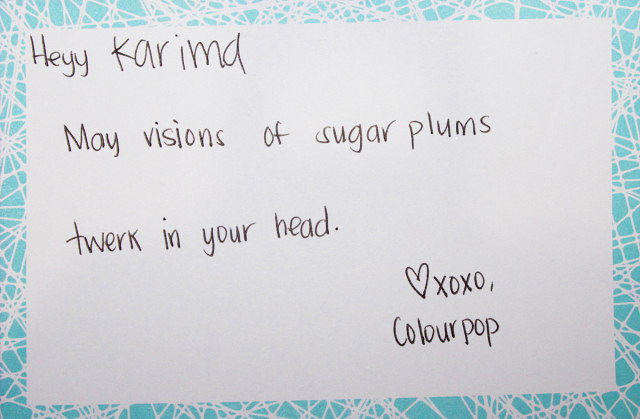 Heyy Karima
May visions of sugar plums
twerk in your head.
♡xoxo,
Colourpop